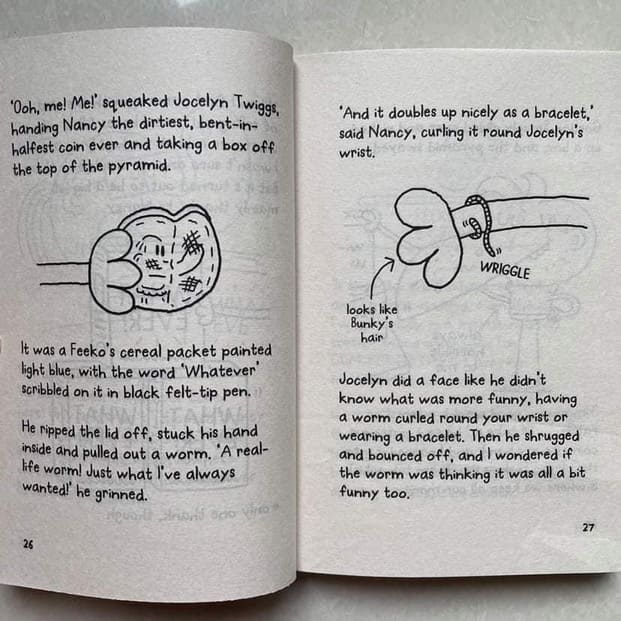 'Ooh, me! Me!' squeaked Jocelyn Twiggs,
handing Nancy the dirtiest, bent-in-
halfest coin ever and taking a box off
the top of the pyramid.
It was a Feeko's cereal packet painted
light blue, with the word 'Whatever'
scribbled on it in black felt-tip pen.
He ripped the lid off, stuck his hand
inside and pulled out a worm. 'A real-
life worm! Just what I've always
wanted!' he grinned.
26
'And it doubles up nicely as a bracelet,'
said Nancy, curling it round Jocelyn's
wrist.
WRIGGLE
looks like
Bunky's
hair
Jocelyn did a face like he didn't
know what was more funny, having
a worm curled round your wrist or
wearing a bracelet. Then he shrugged
and bounced off, and I wondered if
the worm was thinking it was all a bit
funny too.
27